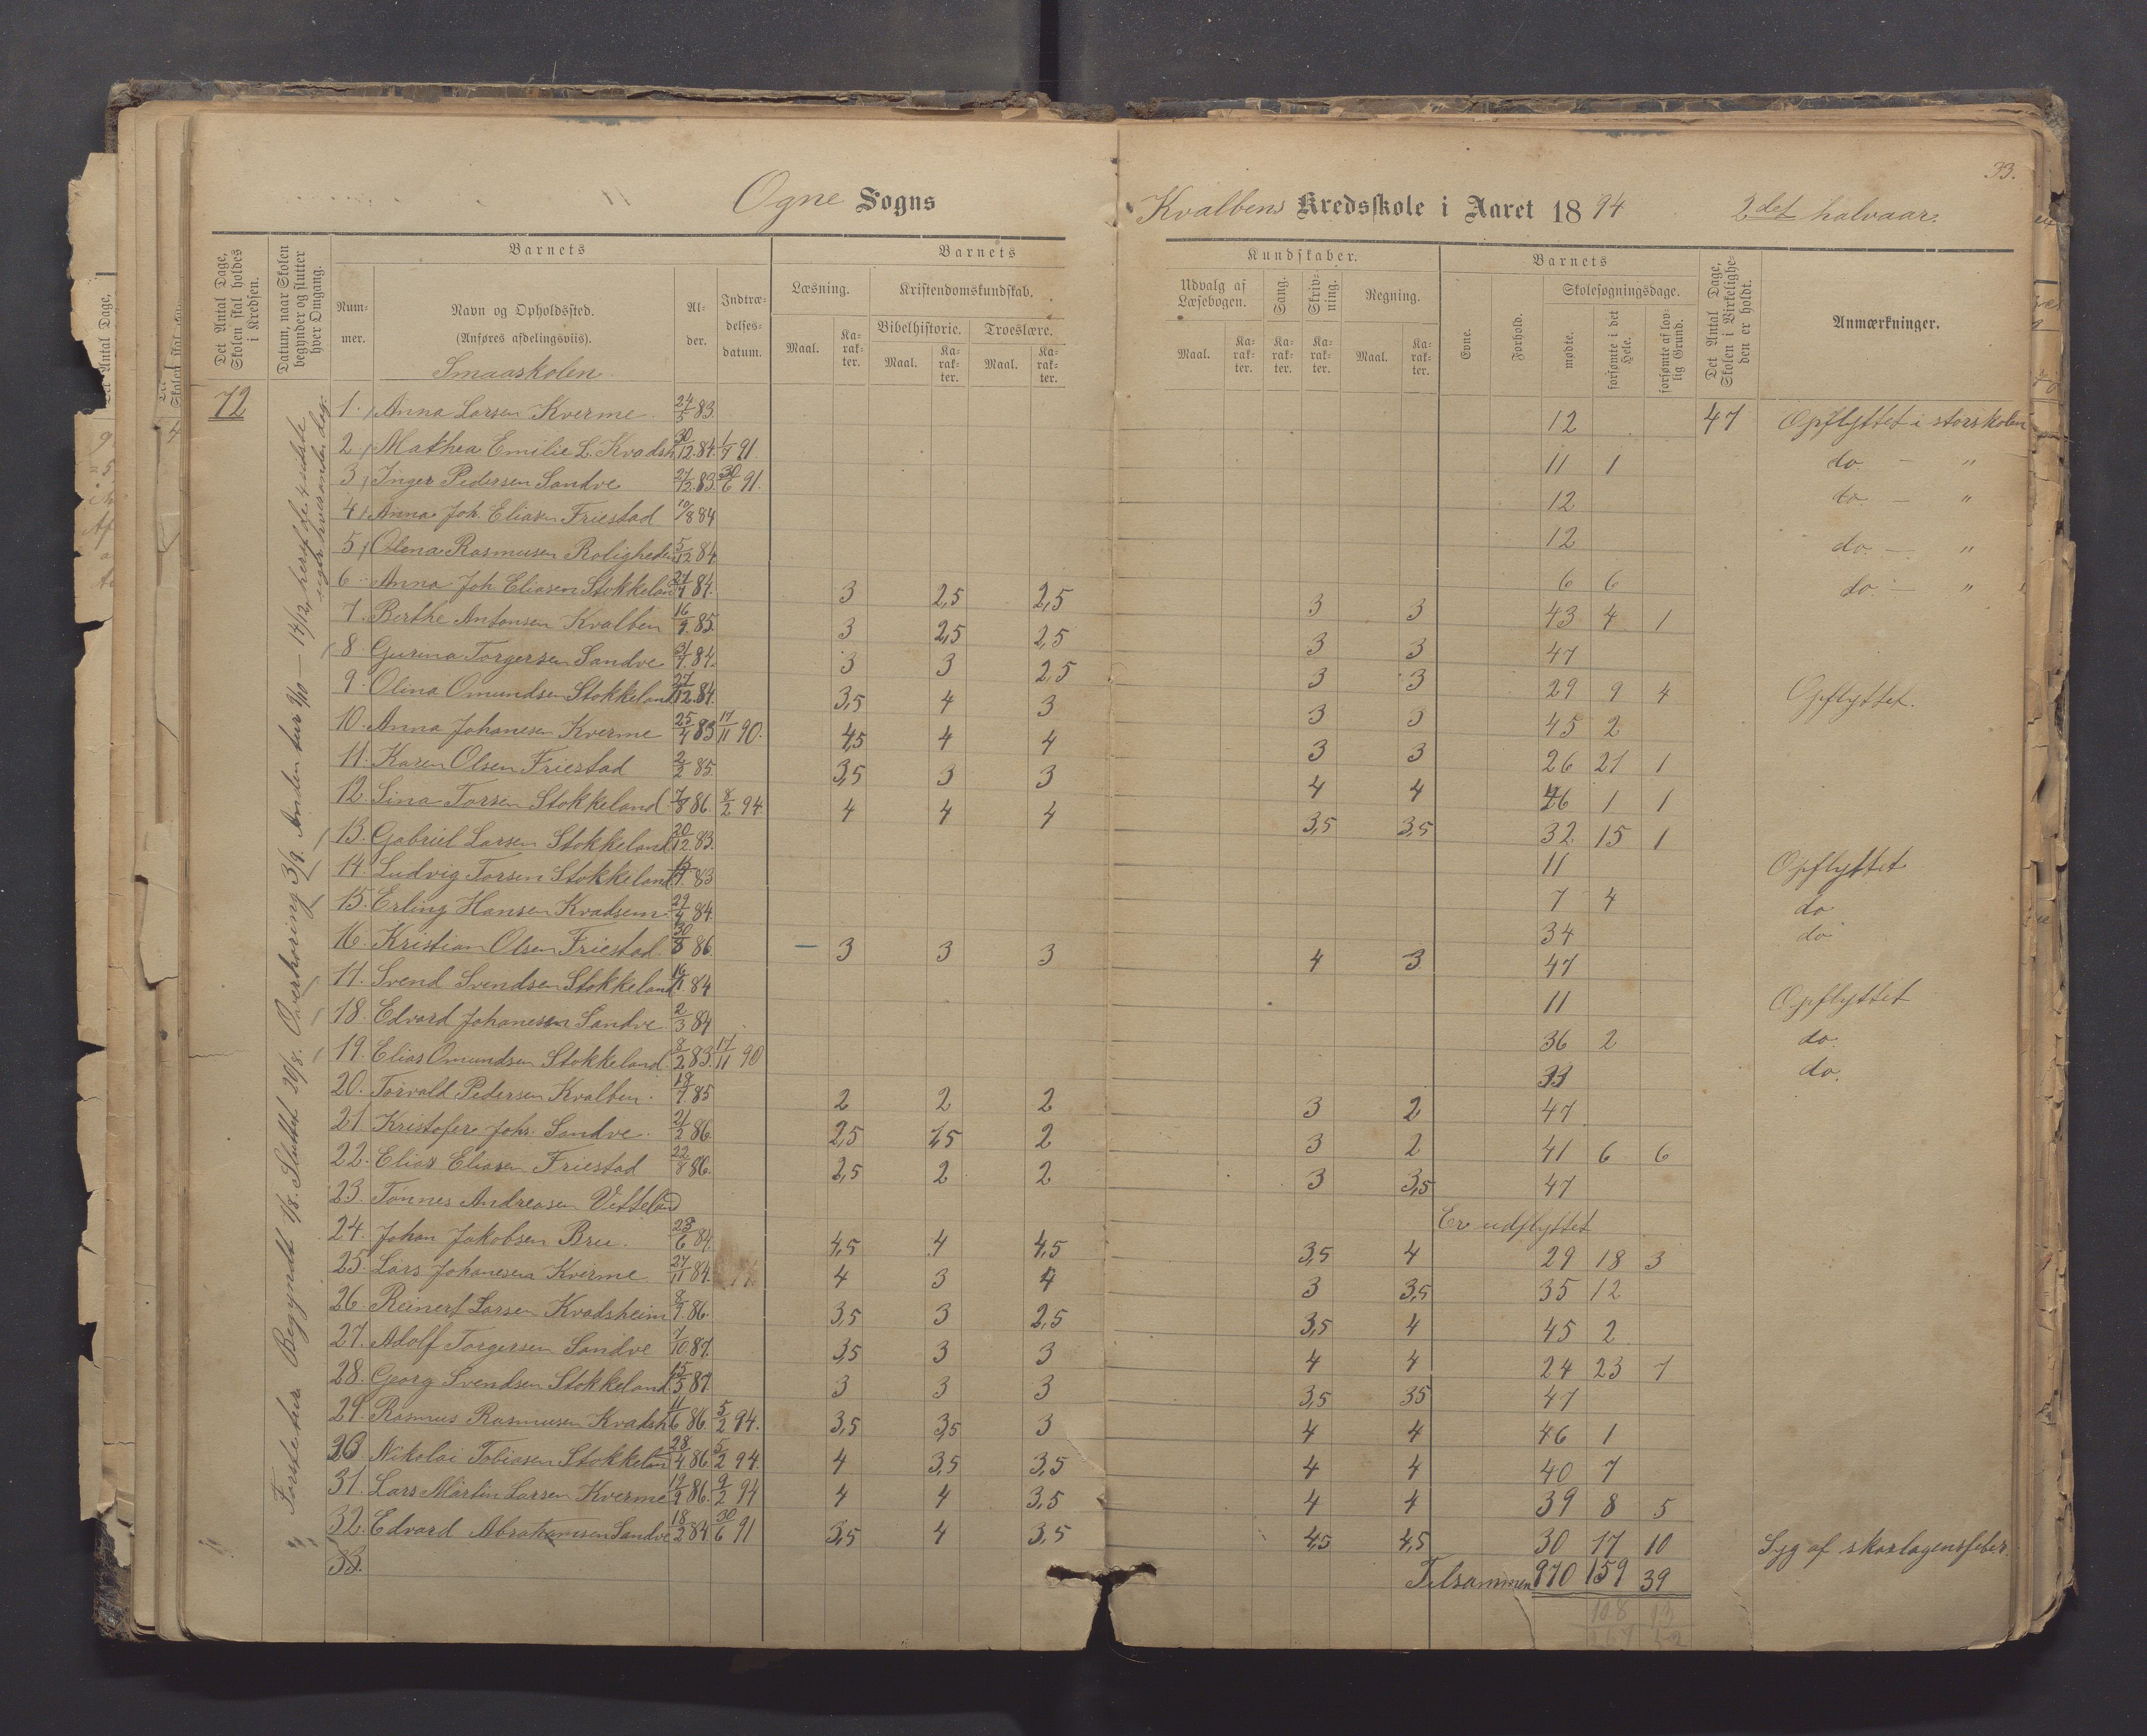 33.
Ogne Sogns Kvalbens Kredsskole i Aaret 1894 2det halvaar.
Det Antal Dage, Skolen skal holdes i Kredsen.
Datum, naar Skolen begynder og slutter hver Omgang.
Barnets
Nummer.
Navn og Opholdssted.
(Anføres afdelingsviis).
Smaaskolen
Alder.
Indtrædelsesdatum.
Barnets
Læsning.
Kristendomskundskab.
Bibelhistorie. Troeslære.
Maal. Karakter. Maal. Karakter. Maal. Karakter.
Kundskaber.
Udvalg af Læsebogen. Sang. Skrivning. Regning.
Maal. Karakter. Karakter. Karakter. Maal. Karakter.
Barnets
Evne. Forhold. Skolesøgningsdage.
mødte. forsømte i det Hele. forsømte af lovlig Grund.
Det Antal Dage, Skolen i Virkeligheden er holdt.
Anmærkninger.
72
Første tur Begyndt 1/8. Sluttet 20/8. Overhøring 3/9. Anden tur 9/10 — 14/12, heraf de 4 sidste
1. Anna Larsen Kverme 24/5 83. 12 47 Opflyttet i storskolen
2 Mathea Emilie L. Kvadsh. 30/12 84. 1/7 91. 11 1 do. — "
3 Inger Pedersen Sandve 27/12 83. 30/6 91. 12 do — "
4 Anna Joh. Eliasen Friestad 10/8 84 12 do. — "
5 Olena Rasmusen Roligheden 5/12 84 6 6 do. — "
6 Anna Joh. Eliasen Stokkeland 84. 3 2,5 2,5 3 3 43 4 1
7. Berthe Antonsen Kvalben 16/9 85. 3 2,5 2,5 3 3 47
8 Gurina Torgersen Sandve 31/7 84. 3 3 2,5 3 3 29 9 4 Opflyttet.
9. Olina Omundsen Stokkeland 27/12 84. 3,5 4 3 3 3 45 2
10. Anna Johanesen Kverme 25/4 83 17/11 90. 4,5 4 4 3 3 26 21 1
11. Karen Olsen Friestad 2/2 85. 3,5 3 3 4 4 46 1 1
12. Sina Torsen Stokkeland 7/8 86. 8/2 94. 4 4 4 3,5 3,5 32 15 1
13. Gabriel Larsen Stokkeland 20/12 83. 11 Opflyttet
14. Ludvig Torsen Stokkeland 83 7 4 do
15. Erling Hansen Kvadsem. 84. 34 do
16. Kristian Olsen Friestad. 30/8 86. — 3 3 3 4 3 47
17. Svend Svendsen Stokkeland 84 11 Opflyttet
18. Edvard Johanesen Sandve. 2/3 84 36 2 do.
19. Elias Omundsen Stokkeland. 8/2 83. 17/11 90 33 do.
20. Torvald Pedersen Kvalben. 85 2 2 2 3 2 47
21. Kristofer Joh. Sandve. 21/2 86. 2,5 1,5 2 3 2 41 6 6
22. Elias Eliasen Friestad 22/8 86. 2,5 2 2 3 3,5 47
23. Tønnes Andreasen Vetteland Er udflyttet
24. Johan Jakobsen Bru. 23/6 84. 4,5 4 4,5 3,5 4 29 18 3
25. Lars Johanesen Kverme 27/11 84. 4 3 4 3 3,5 35 12
26. Reinert Larsen Kvadsheim 8/9 86. 3,5 3 2,5 3,5 4 45 2
27. Adolf Torgersen Sandve 7/10 87. 3,5 3 3 4 4 24 23 7
28. Georg Svendsen Stokkeland. 15/5 87 3 3 3 3,5 35 47
29. Rasmus Rasmusen Kvadsh. 11/6 86. 5/2 94. 3,5 3,5 3 4 4 46 1
30 Nikolai Tobiasen Stokkelan 28/4 86. 5/2 94. 4 3,5 3,5 4 4 40 7
31. Lars Martin Larsen Kverme 19/9 86. 9/2 94 4 4 3,5 4 4 39 8 5
32. Edvard Abrahamsen Sandve 18/2 84. 30/6 91 3,5 4 3,5 4,5 4,5 30 17 10 Syg af skarlagensfeber.
33. Tilsammen 970 159 39
108 13
267 52